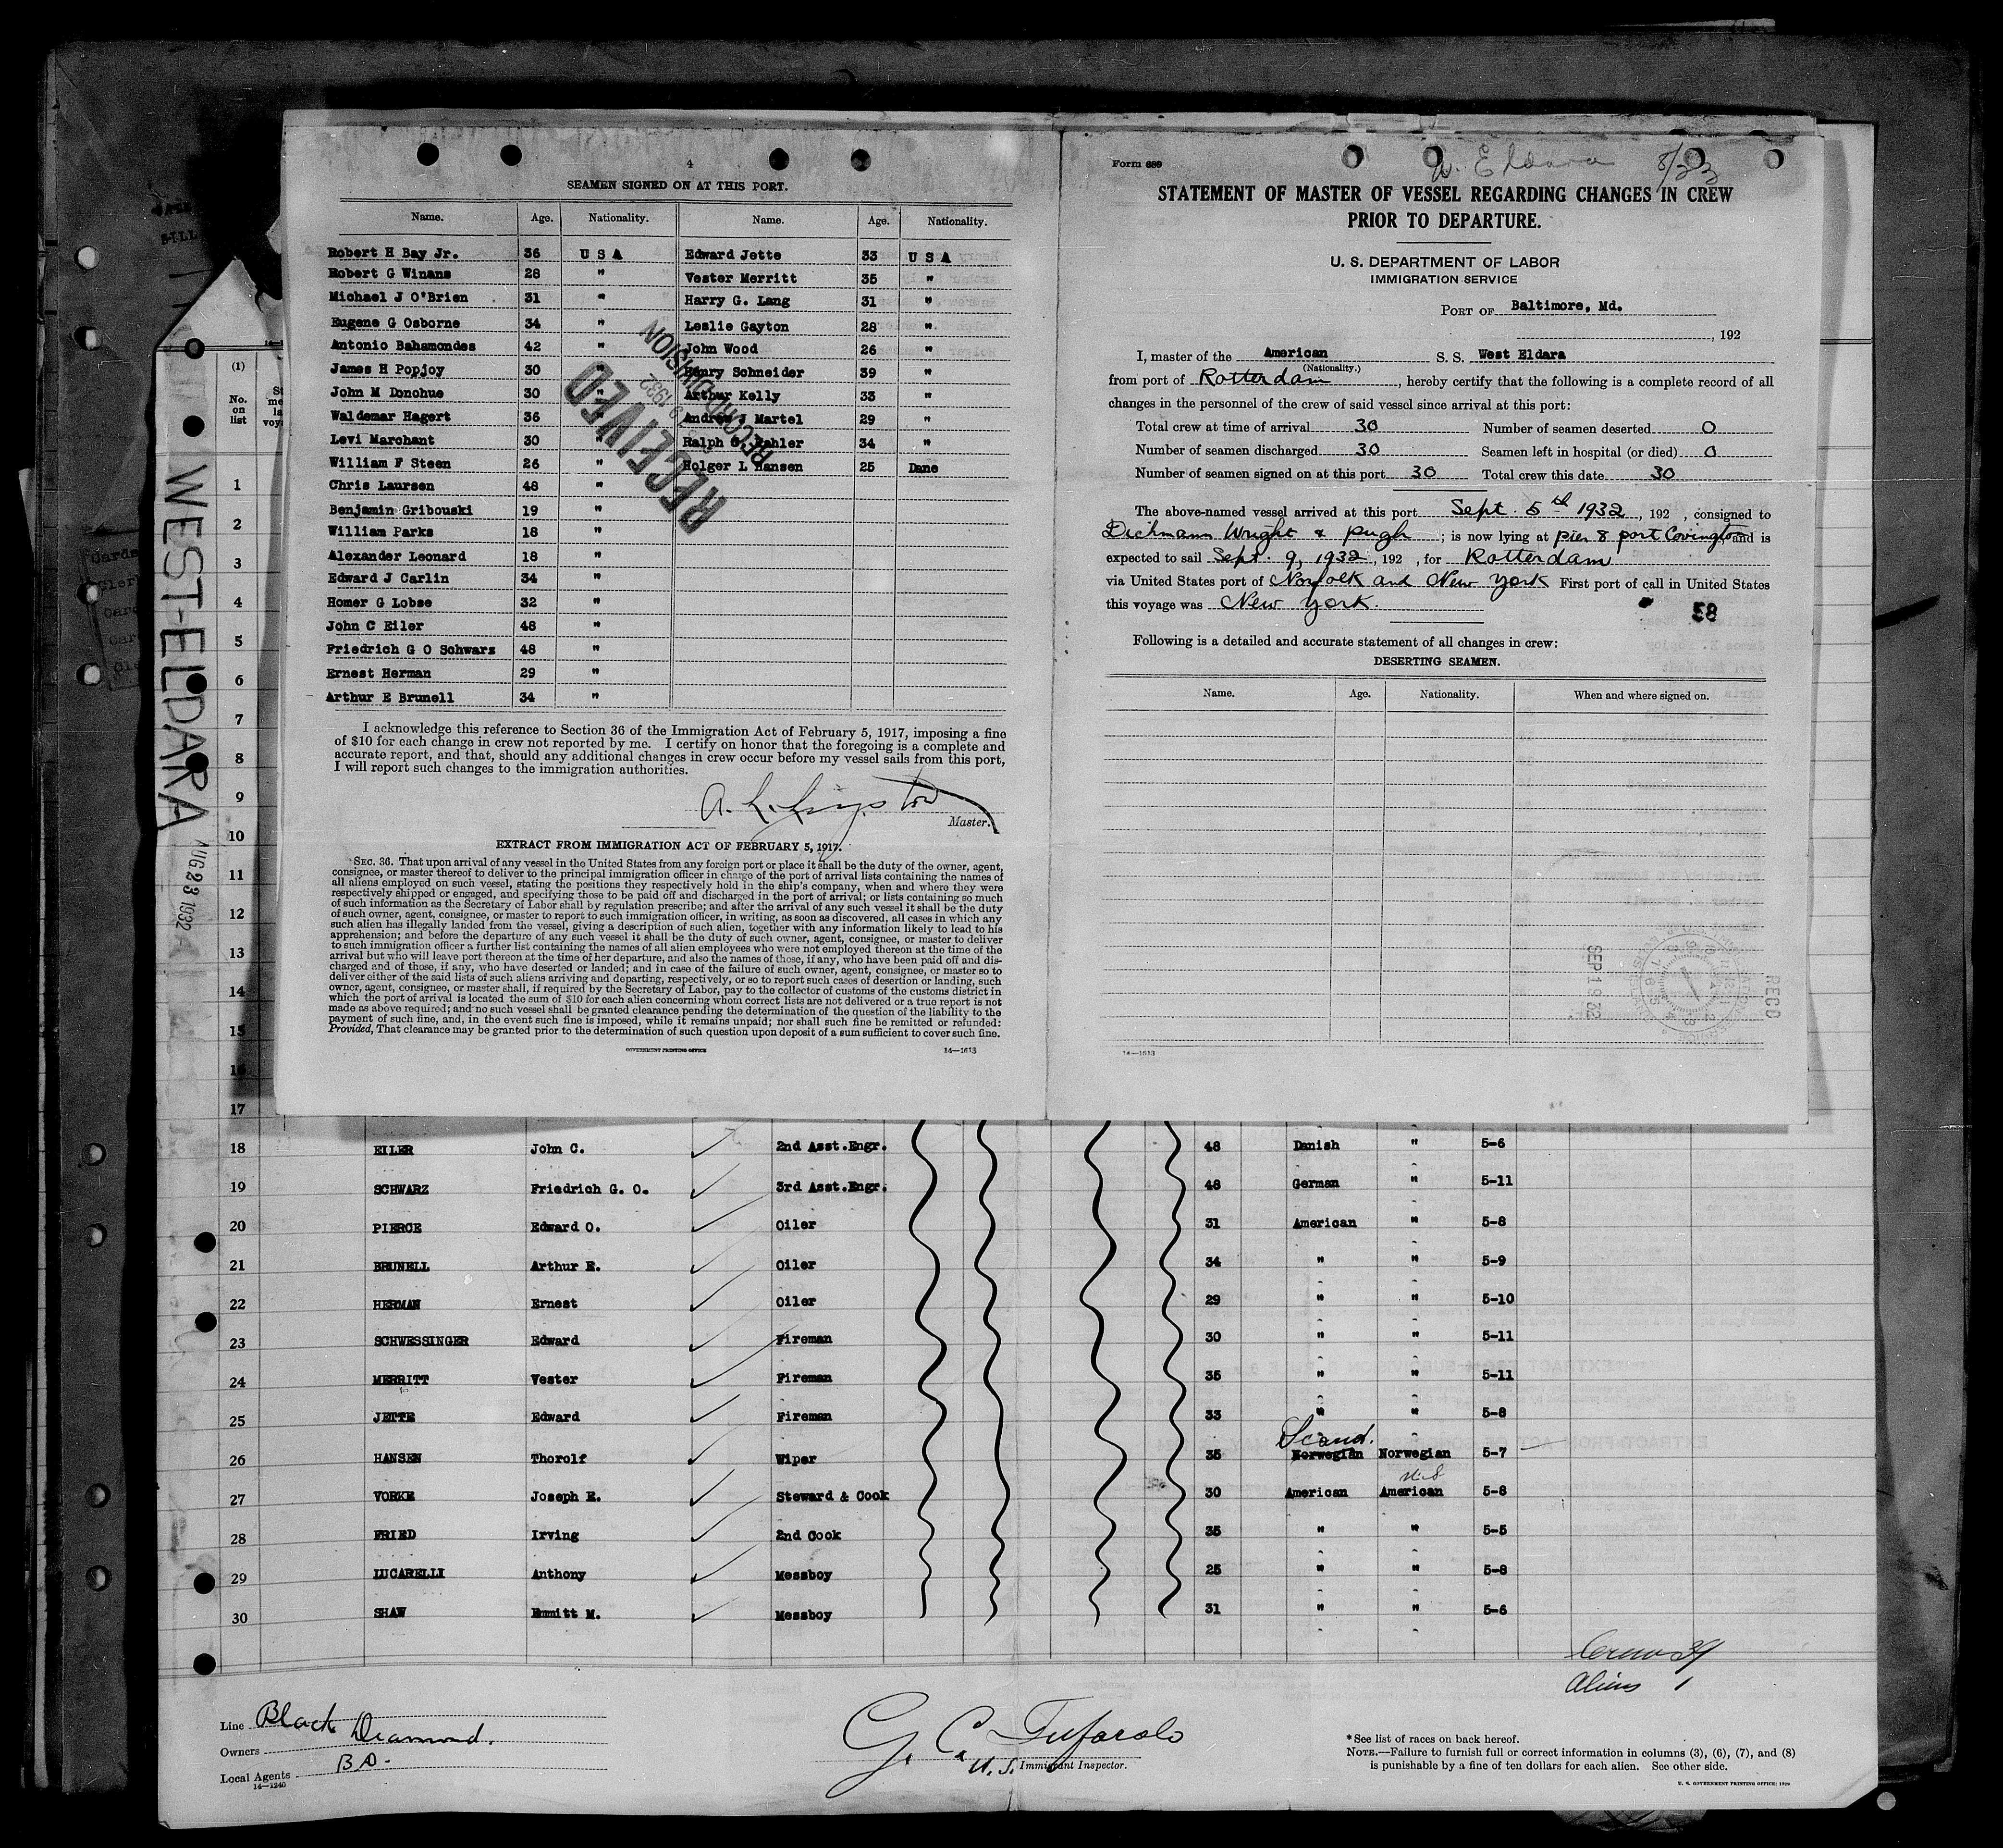 4
SEAMEN SIGNED ON AT THIS PORT.
Name. Age. Nationality. Name. Age. Nationality.
Robert H Bay Jr. 36 U S A Edward Jette 33 U S A
Robert G Winans 28 " Vester Merritt 35 "
Michael J O'Brien 31 " Harry G. Lang 31 "
Eugene G Osborne 34 " Leslie Gayton 28 "
Antonio Bahamondes 42 " John Wood 26 "
James H Popjoy 30 " Henry Schneider 39 "
John M Donohue 30 " Arthur Kelly 33 "
Waldemar Hagert 36 " Andrew J Martel 29 "
Levi Marchant 30 " Ralph 34 "
William F Steen 26 " Holger L Hansen 25 Dane
Chris Laursen 48 "
Benjamin Gribouski 19 "
William Parks 18 "
Alexander Leonard 18 "
Edward J Carlin 34 "
Homer G Lobse 32 "
John C Eiler 48 "
Friedrich G O Schwarz 48 "
Ernest Herman 29 "
Arthur E Brunell 34 "
RECEIVED
1932
RECORD DIVISION
I acknowledge this reference to Section 36 of the Immigration Act of February 5, 1917, imposing a fine
of $10 for each change in crew not reported by me. I certify on honor that the foregoing is a complete and
accurate report, and that, should any additional changes in crew occur before my vessel sails from this port,
I will report such changes to the immigration authorities.
Master.
EXTRACT FROM IMMIGRATION ACT OF FEBRUARY 5, 1917.
SEC. 36. That upon arrival of any vessel in the United States from any foreign port or place it shall be the duty of the owner, agent,
consignee, or master thereof to deliver to the principal immigration officer in charge of the port of arrival lists containing the names of
all aliens employed on such vessel, stating the positions they respectively hold in the ship's company, when and where they were
respectively shipped or engaged, and specifying those to be paid off and discharged in the port of arrival; or lists containing so much
of such information as the Secretary of Labor shall by regulation prescribe; and after the arrival of any such vessel it shall be the duty
of such owner, agent, consignee, or master to report to such immigration officer, in writing, as soon as discovered, all cases in which any
such alien has illegally landed from the vessel, giving a description of such alien, together with any information likely to lead to his
apprehension; and before the departure of any such vessel it shall be the duty of such owner, agent, consignee, or master to deliver
to such immigration officer a further list containing the names of all alien employees who were not employed thereon at the time of the
arrival but who will leave port thereon at the time of her departure, and also the names of those, if any, who have been paid off and dis-
charged and of those, if any, who have deserted or landed; and in case of the failure of such owner, agent, consignee, or master so to
deliver either of the said lists of such aliens arriving and departing, respectively, or so to report such cases of desertion or landing, such
owner, agent, consignee, or master shall, if required by the Secretary of Labor, pay to the collector of customs of the customs district in
which the port of arrival is located the sum of $10 for each alien concerning whom correct lists are not delivered or a true report is not
made as above required; and no such vessel shall be granted clearance pending the determination of the question of the liability to the
payment of such fine, and, in the event such fine is imposed, while it remains unpaid; nor shall such fine be remitted or refunded:
Provided, That clearance may be granted prior to the determination of such question upon deposit of a sum sufficient to cover such fine.
GOVERNMENT PRINTING OFFICE 14—1613
Form 689
W. Eldara 8/23
STATEMENT OF MASTER OF VESSEL REGARDING CHANGES IN CREW
PRIOR TO DEPARTURE.
U. S. DEPARTMENT OF LABOR
IMMIGRATION SERVICE
PORT OF Baltimore, Md.
, 192
I, master of the American S. S. West Eldara
(Nationality.)
from port of Rotterdam, hereby certify that the following is a complete record of all
changes in the personnel of the crew of said vessel since arrival at this port:
Total crew at time of arrival 30 Number of seamen deserted 0
Number of seamen discharged 30 Seamen left in hospital (or died) 0
Number of seamen signed on at this port 30 Total crew this date 30
The above-named vessel arrived at this port Sept. 5th 1932, 192 , consigned to
Dichmann Wright & Pugh ; is now lying at pier 8 port Covington and is
expected to sail Sept. 9, 1932, 192 , for Rotterdam
via United States port of Norfolk and New York First port of call in United States
this voyage was New York.
58
Following is a detailed and accurate statement of all changes in crew:
DESERTING SEAMEN.
Name. Age. Nationality. When and where signed on.
REC'D
SEP 1932
14—1613
WEST-ELDARA
AUG 23 1932
(1)
No. on list
1
2
3
4
5
6
7
8
9
10
11
12
13
14
15
16
17
18 EILER John C. 2nd Asst.Engr. 48 Danish " 5-6
19 SCHWARZ Friedrich G. O. 3rd Asst.Engr. 48 German " 5-11
20 PIERCE Edward O. Oiler 31 American " 5-8
21 BRUNELL Arthur E. Oiler 34 " " 5-9
22 HERMAN Ernest Oiler 29 " " 5-10
23 SCHWESSINGER Edward Fireman 30 " " 5-11
24 MERRITT Vester Fireman 35 " " 5-11
25 JETTE Edward Fireman 33 " " 5-8
Scand.
26 HANSEN Thorolf Wiper 35 Norwegian Norwegian 5-7
U.S
27 VORKE Joseph E. Steward & Cook 30 American American 5-8
28 FRIED Irving 2nd Cook 35 " " 5-5
29 LUCARELLI Anthony Messboy 25 " " 5-8
30 SHAW Emmitt M. Messboy 31 " " 5-6
Crew 29
Aliens 1
Line Black Diamond.
Owners
Local Agents B.D.
14—1240
G. C. Tufarolo
U.S. Immigrant Inspector.
* See list of races on back hereof.
NOTE.—Failure to furnish full or correct information in columns (3), (6), (7), and (8)
is punishable by a fine of ten dollars for each alien. See other side.
U. S. GOVERNMENT PRINTING OFFICE: 1929